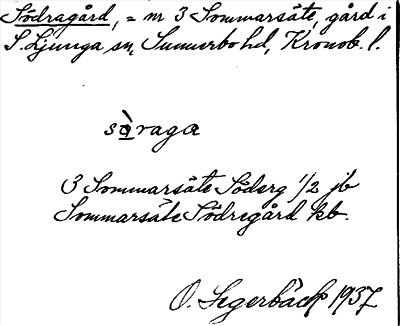 Södragård, = nr 3 Sommarsäte, gård i
S. Ljunga sn, Sunnerbo hd, Kronob. l.
sòraga
3 Sommarsäte Söderg 1/2 jb
Sommarsäte Södregård kb.
O. Segerbäck 1937